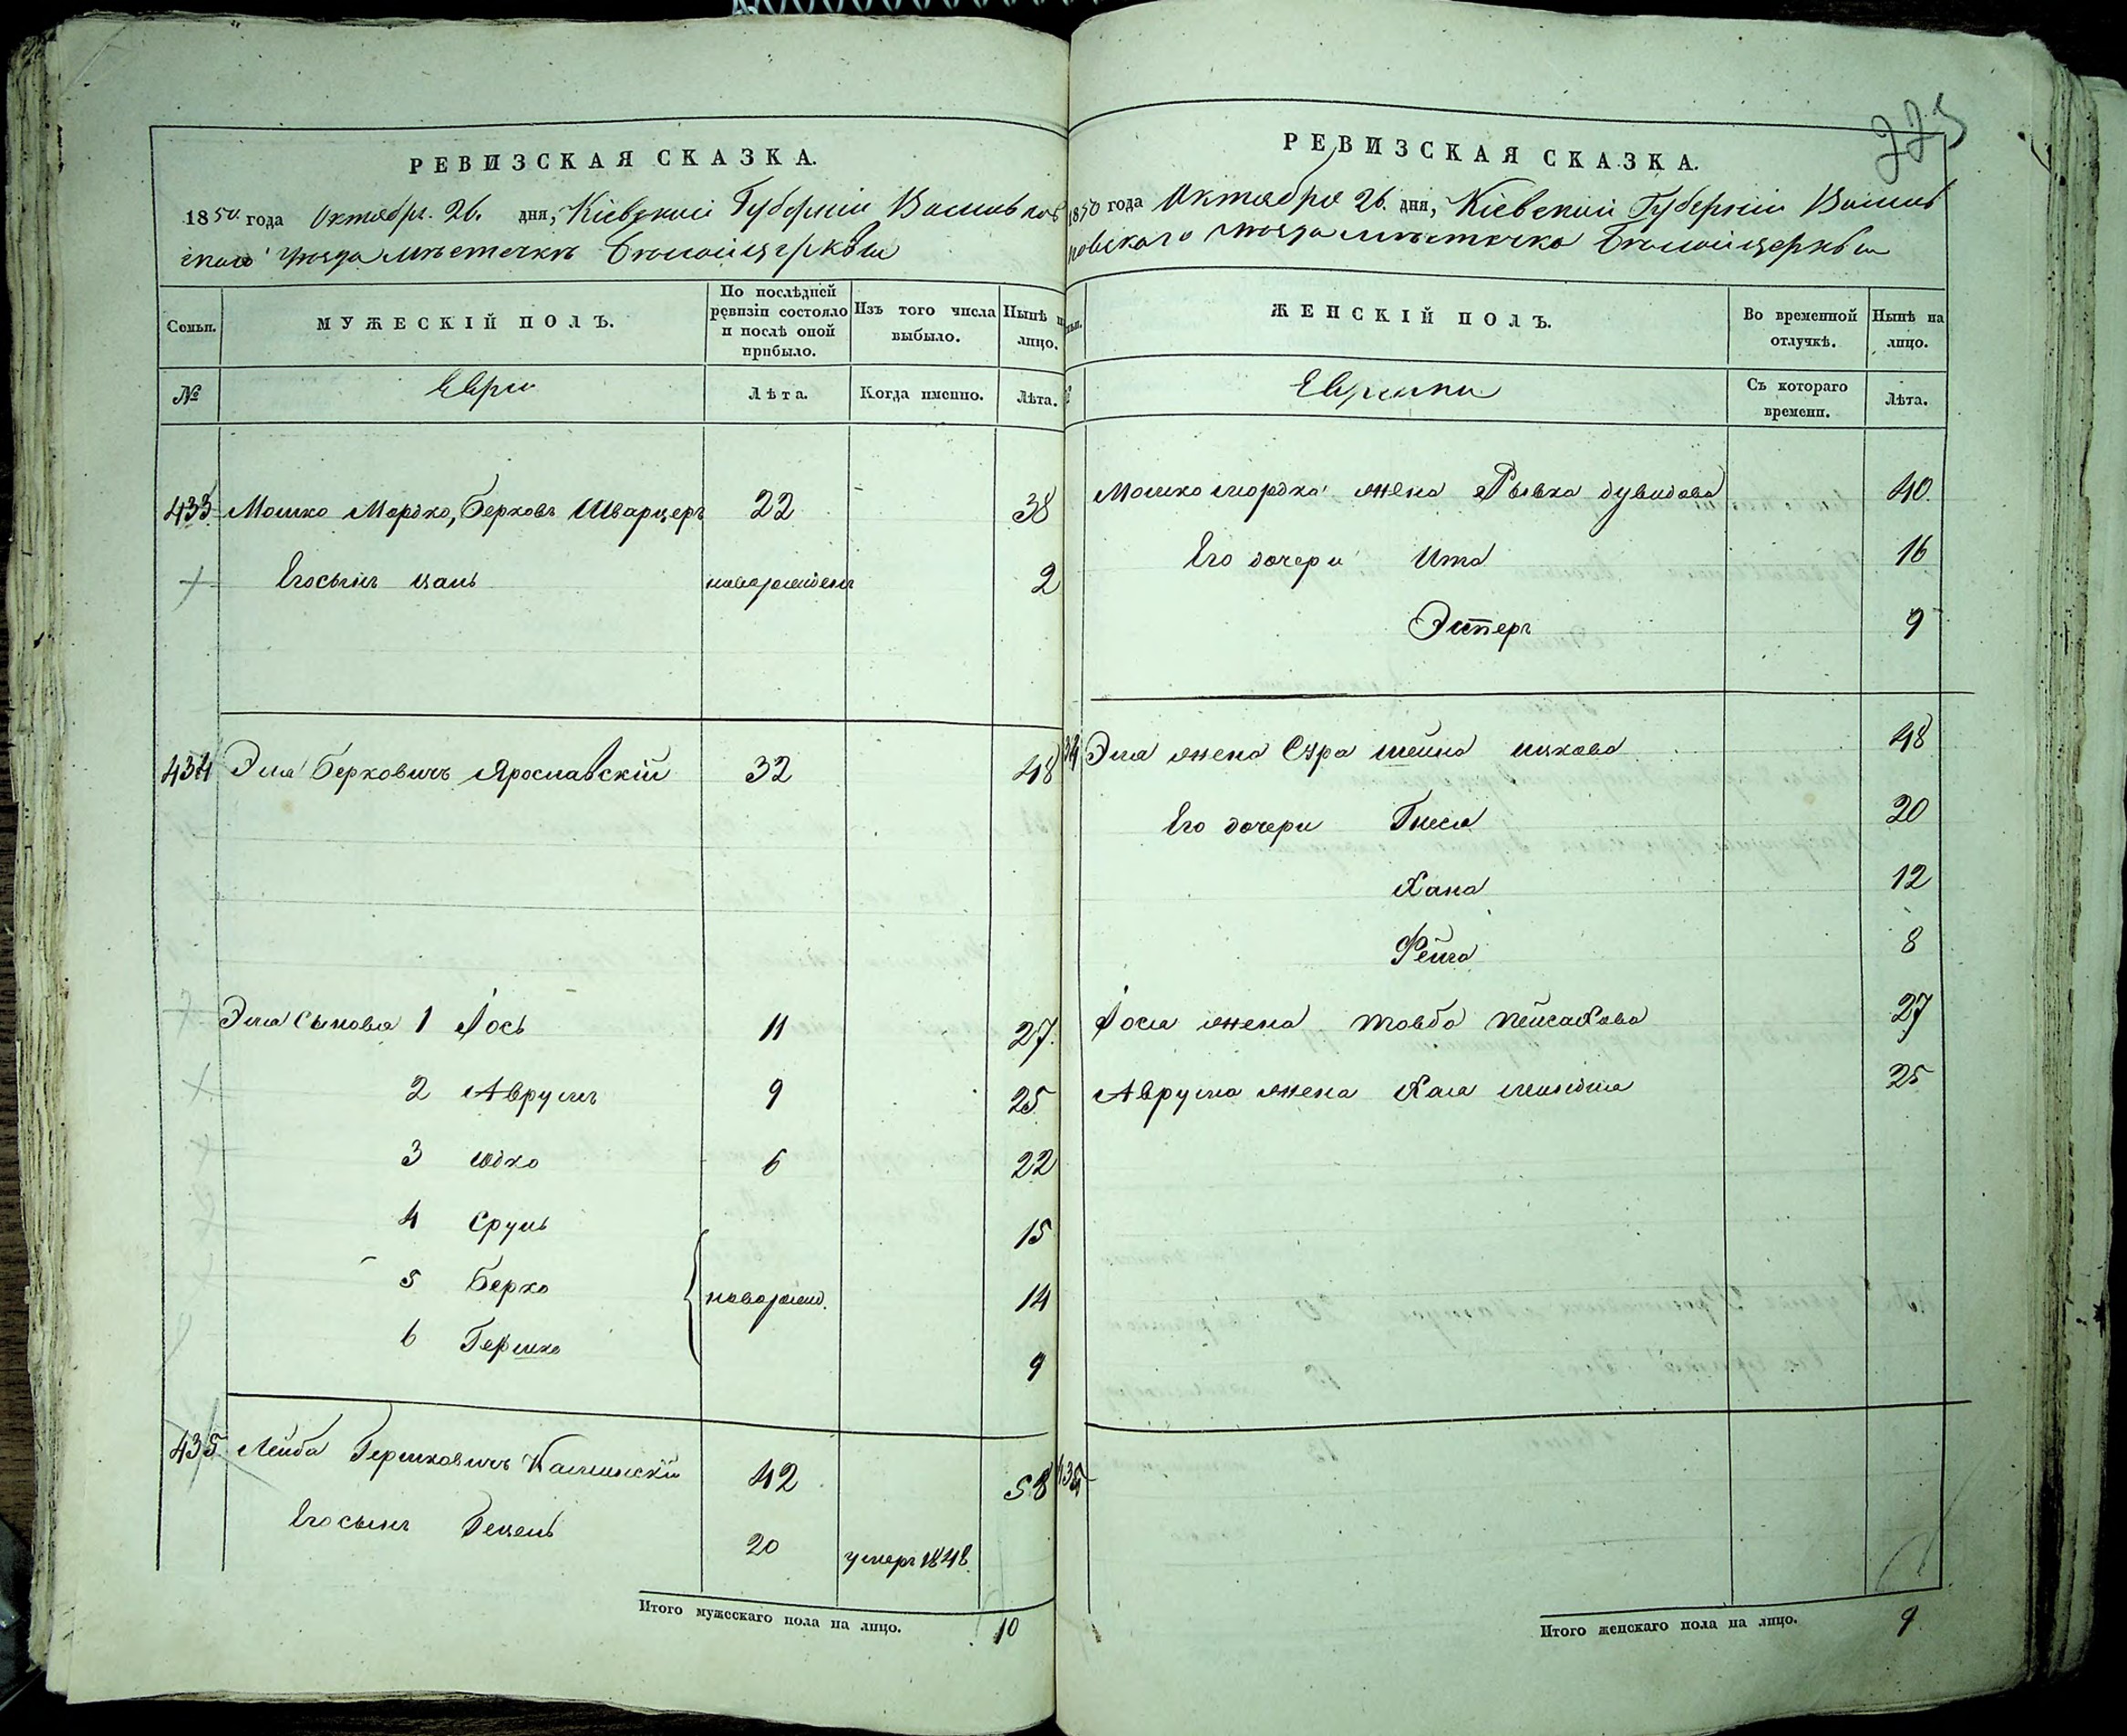 225
РЕВИЗСКАЯ СКАЗКА.
1850 года Октября 26. дня, Кіевской Губерніи Васильков
скаго уезда мѣстечкѣ Белойцеркви
Семьи. МУЖЕСКІЙ ПОЛЪ. По послѣдней ревизіи состояло и послѣ оной прибыло. Изъ того числа выбыло. Нынѣ на лицо.
№ Евреи Лѣта. Когда именно. Лѣта.
433 Мошко Мордко, Берковъ Шварцеръ 22 38
Его сынъ новорожденъ 2
434 Эля Берковичъ Ярославскій 32 48
Эля сыновья 1 Іось 11 27.
2 Аврумъ 9 25
3 Юдко 6 22
4 Сруль 15
5 Берко новорожд. 14
6 Гершко 9
435 Лейба Гершковичъ Каминскій 42 58
Его сынъ Бецель 20 умеръ 1848.
Итого мужескаго пола на лицо. 10
РЕВИЗСКАЯ СКАЗКА.
1850 года Октября 26. дня, Кіевской Губерніи Василь
ковскаго уезда мѣстечка Белойцеркви
ЖЕНСКІЙ ПОЛЪ. Во временной отлучкѣ. Нынѣ на лицо.
Еврейки Съ котораго времени. Лѣта.
Мошко мордка жена Рывка дувидова 40
Его дочери Ита 16
Эстеръ 9
34 Эля жена Сура шейна ицкова 48
Его дочери Гнеся 20
Хана 12
Фейга 8
Іося жена товба пейсахова 27
Аврума жена Хая миндля 25
435
Итого женскаго пола на лицо. 9